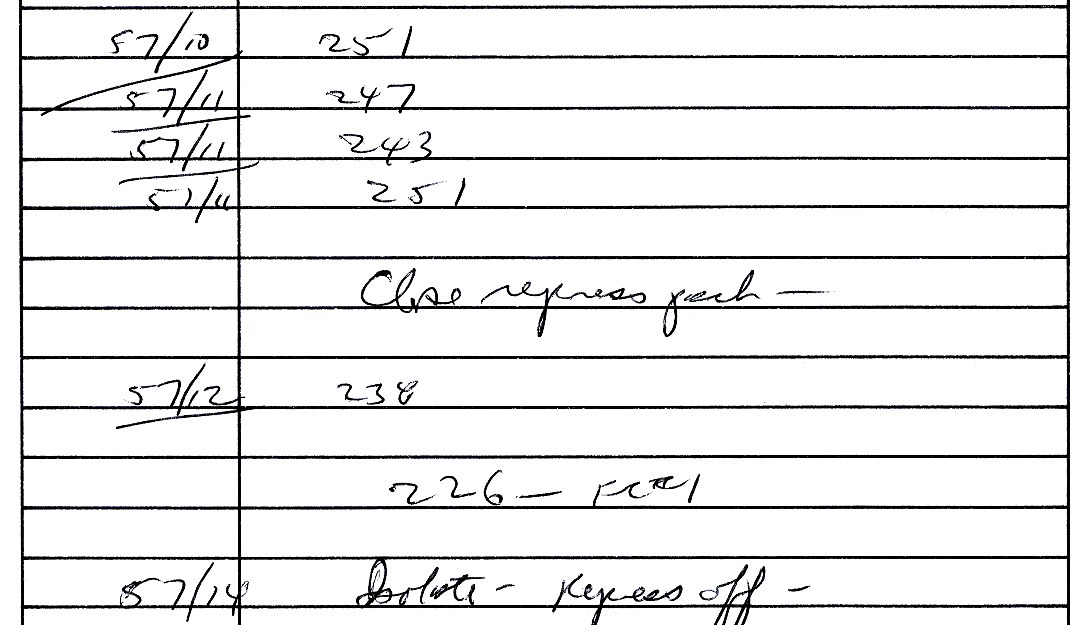 57/10 251
57/11 247
57/11 243
57/11 251
Close repress pack —
57/12 238
226 — FC#1
57/14 Isolate - Repress off -